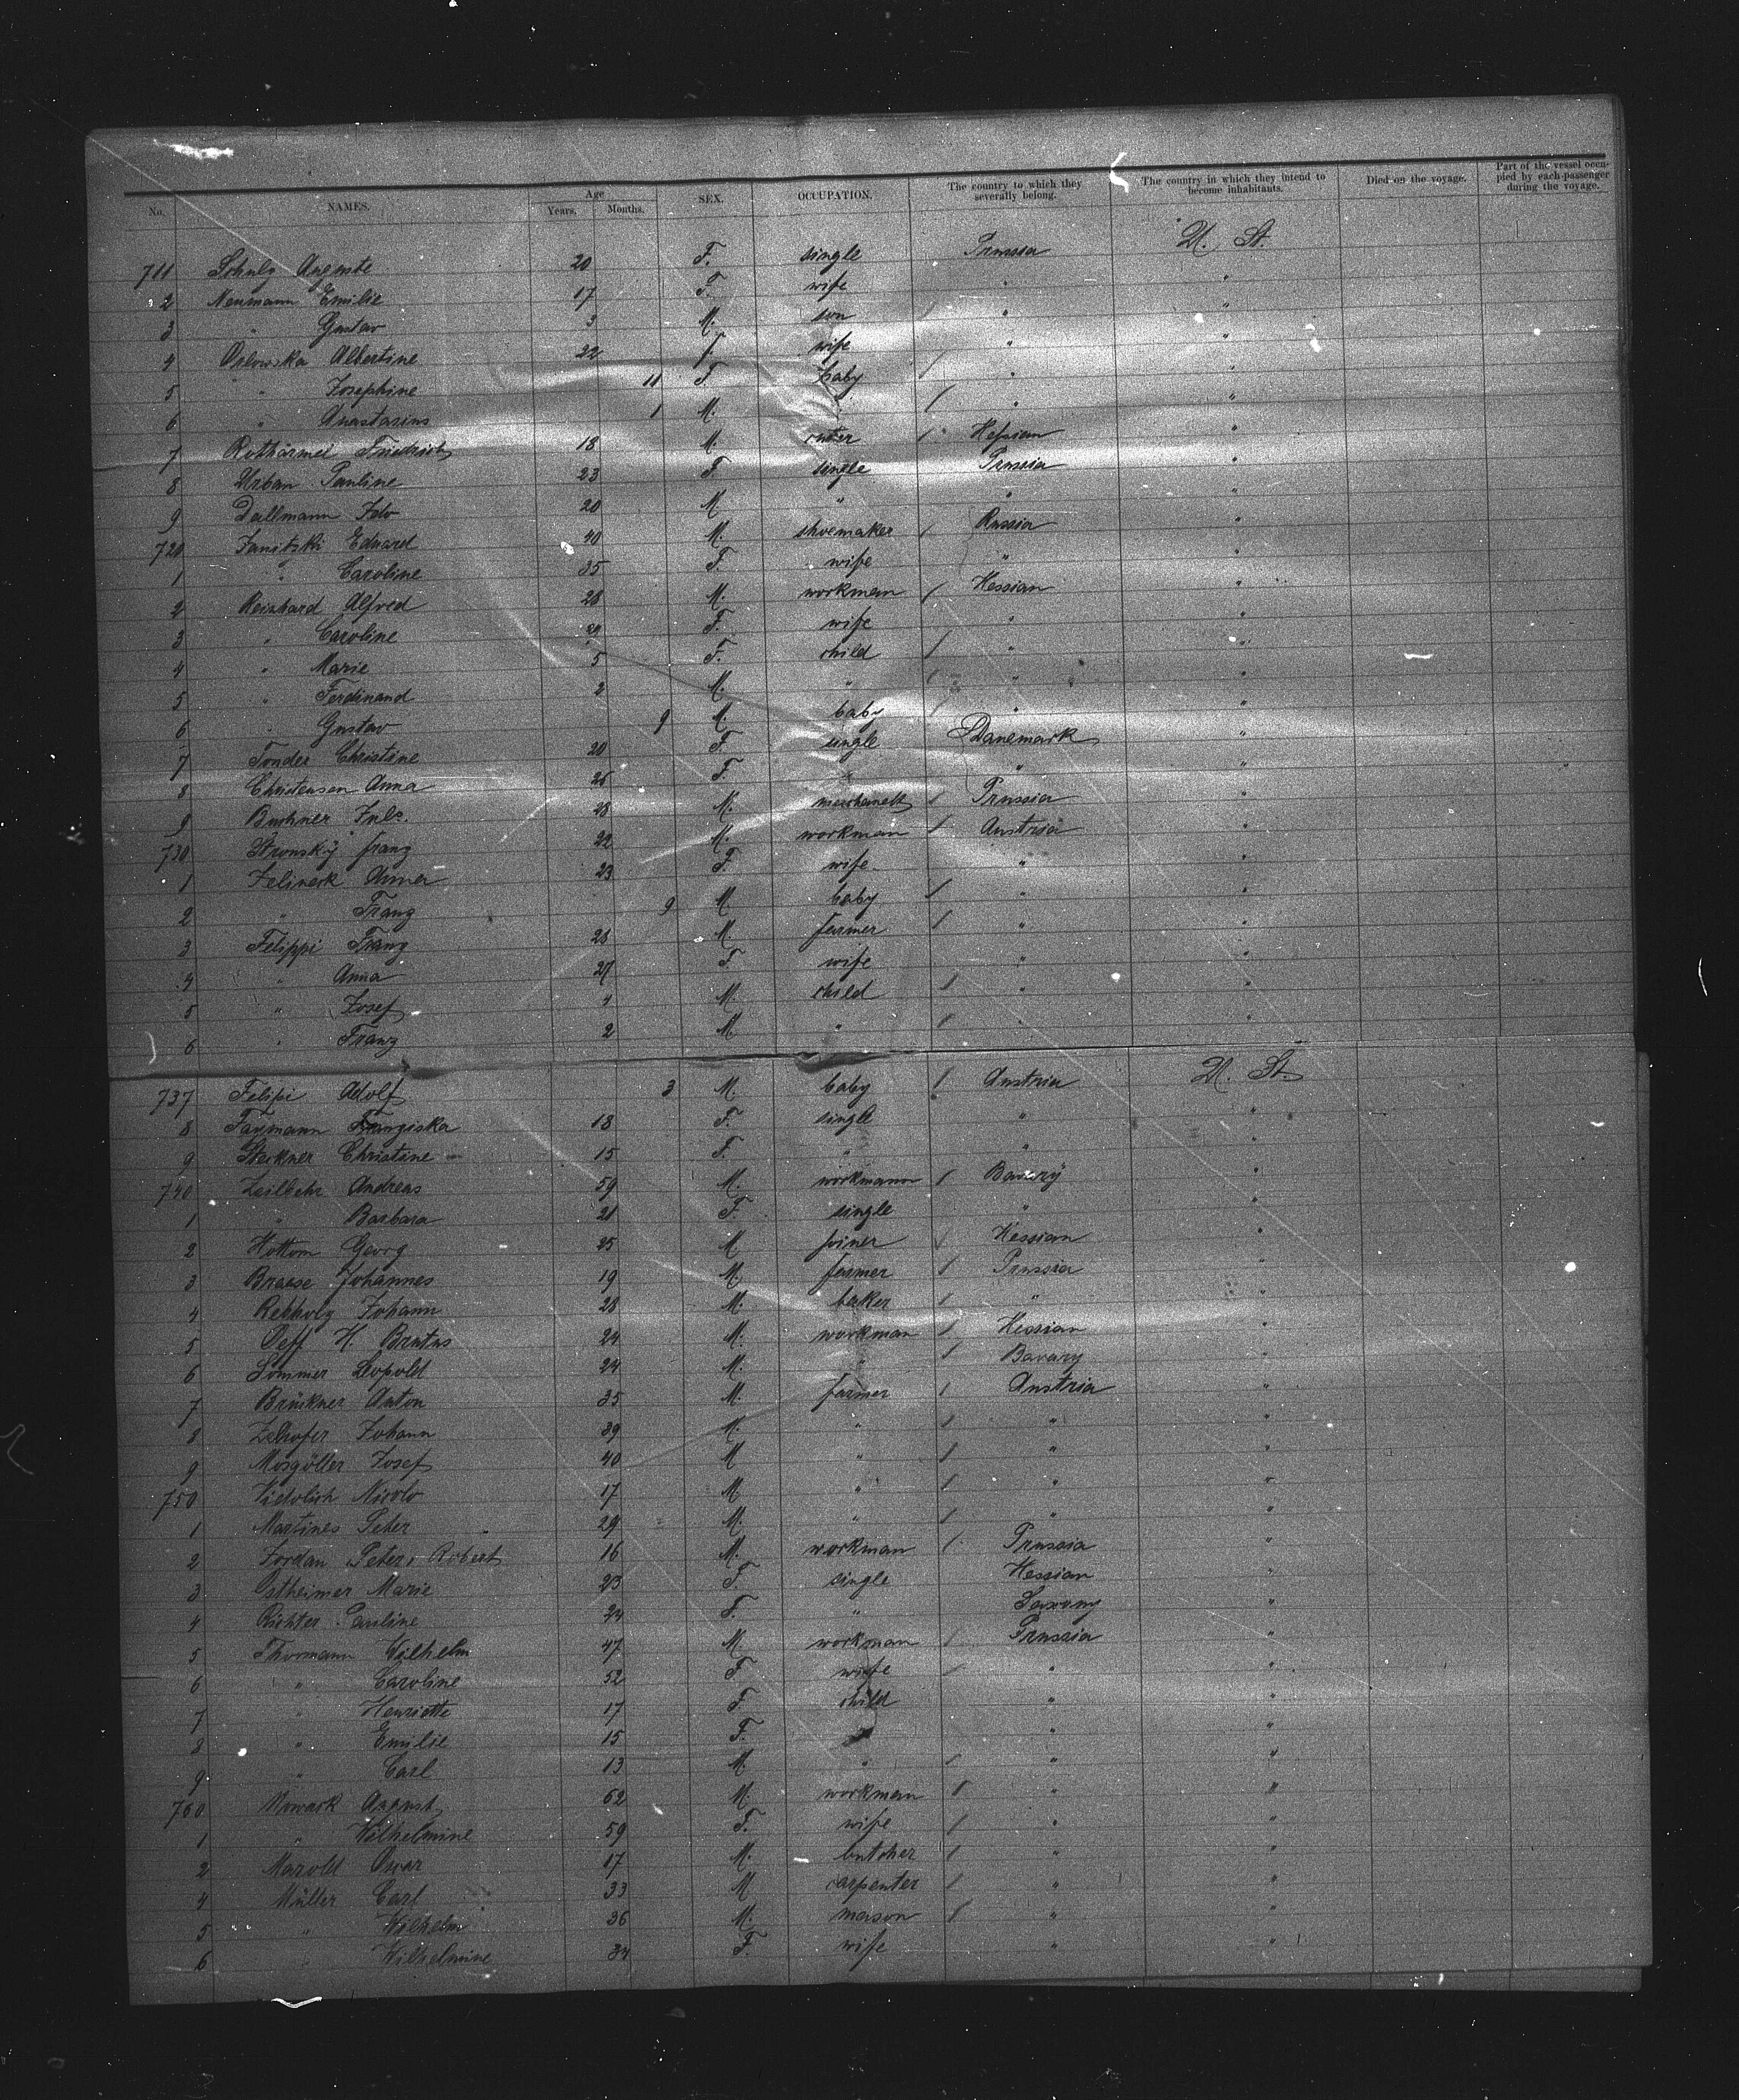 No. NAMES. Age Years. Months. SEX. OCCUPATION. The country to which they severally belong. The country in which they intend to become inhabitants. Died on the voyage. Part of the vessel occupied by each passenger during the voyage.
711 Schulz Auguste 20 F. single Prussia U. St.
2 Neumann Emilie 17 F. wife " "
3 " Gustav 3 M. son " "
4 Orlowska Albertine 22 f. wife " "
5 " Josephine 11 F. baby / " "
6 " Anastasius 1 M. " / " "
7 Rothärmel Friedrich 18 M. / Hessian "
8 Urban Pauline 23 F single Prussia "
9 Dallmann 20 M " " "
720 Janitzki Eduard 40 M. shoemaker / Russia "
1 " Caroline 35 F. wife " "
2 Reinhard Alfred 28 M. workman / Hessian "
3 " Caroline 29 F. wife " "
4 " Marie 5 F. child / " "
5 " Ferdinand 2 M. " / " "
6 " Gustav 9 M. baby / " "
7 Tonder Christine 20 F. single Danemark "
8 Christensen Anna 26 F. " " "
9 Buchner Juls. 28 M. / Prussia "
730 Stronsky franz 22 M. workman / Austria "
1 Zelineck Anna 23 F. wife " "
2 " Franz 9 M baby / " "
3 Felippi Franz 28 M. farmer / " "
4 " Anna 27 F. wife " "
5 " Josef 4 M. child / " "
6 " Franz 2 M. " / " "
737 Felipi Adolf 3 M. baby / Austria U. St.
8 Taxmann Franziska 18 F. single " "
9 Steckner Christine 15 F. " " "
740 Zeilbehr Andreas 59 M. workmann / Bavary "
1 " Barbara 21 F. single " "
2 Hottom Georg 25 M joiner / Hessian "
3 Braese Johannes 19 M. farmer / Prussia "
4 Rebholz Johann 28 M. baker / " "
5 Oeff H. Brutus 24 M. workman / Hessian "
6 Sommer Leopold 24 M. " / Bavary "
7 Brückner Anton 35 M. farmer / Austria "
8 Zelhofer Johann 39 M. " / " "
9 Mosgöller Josef 40 M " / " "
750 Vidolich Nicolo 17 M " / " "
1 Martines Peter 29 M. " / " "
2 Jordan Peter, Robert 16 M. workman / Prussia "
3 Ostheimer Marie 23 F. single Hessian "
4 Richter Pauline 24 F. " Saxony "
5 Thormann Wilhelm 47 M. workman / Prussia "
6 " Caroline 52 F wife " "
7 " Henriette 17 F. child " "
8 " Emilie 15 F. " " "
9 " Carl 13 M " / " "
760 Nowack August 62 M. workman / " "
1 " Wilhelmine 59 F. wife / " "
2 Marold Oscar 17 M. butcher / " "
4 Müller Carl 33 M carpenter / " "
5 " Wilhelm 36 M. mason / " "
6 " Wilhelmine 34 F. wife " "